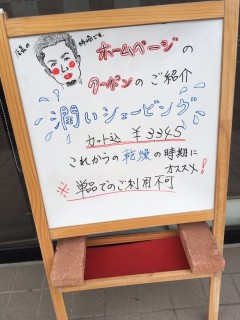 ホームページの
クーポンのご紹介
潤いシェービング
カット込 ¥3345
これからの乾燥の時期に
オススメ!
※単品でのご利用不可